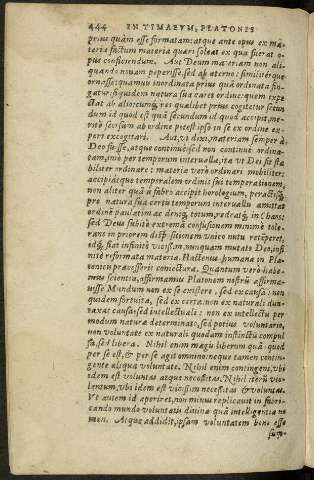 444 IN TIMAEVM, PLATONIS
prius quàm esse formatam: atque ante opus ex ma-
teria factum materia quari soleat ex qua fuerat o-
pus conficiendum. Aut Deum materiam non ali-
quando nouam peperisse, sed ab æterno: similiter que
ornasse: quamuis inordinata prius quâ ordinata fin-
gatur: siquidem natura sua caret ordine: quem expe
ctat ab alio: cumq́; res qualibet prius cogitetur secun
dum id quod est quàm secundum id quod accipit, me-
ritò seorsum ab ordine potest ipso in se ex ordine ex-
peri excogitari. Aut, vt dixi, materiam semper à
Deo fuisse, atque continuè: sed non continuè ordina-
tam, imò per temporum interualla, ita vt Dei sit sta
biliter ordinare: materia verò ordinari mobiliter:
accipiatque temporalem ordinis sui temperationem,
non aliter quàm à fabro accipit horologium, peractisq́;
pre natura suæ certis temporum interuallis amittat
ordine paulatim ac deniq́; totum, redeatq́; in Chaos:
sed Deus subitò extremâ confusionem minimè tole-
rans in priorem dispositionem vnico nutu recuperet,
idq́; fiat infinitis vicibus, nunquam mutato Deo, infi-
nitè reformata materia. Hactenus humana in Pla-
tonicis processerit coniectura. Quantum verò habe-
mus scientia, affirmamus Platonem nostrû affirma-
uisse Mundum non ex se existere, sed ex causa: non
quidem fortuita, sed ex certa: non ex naturali dun-
taxat causa sed intellectuali: non ex intellectu per
modum naturæ determinato, sed potius voluntario,
non voluntate ex naturali quodam instinctu compul
sa, sed libera. Nihil enim magis liberum quâ quod
per se est, & per se agit omnino: neque tamen contin-
gente aliqua voluntate. Nihil enim contingens, vbi
idem est voluntas atque necessitas. Nihil iterū vio-
lentum, vbi idem est vicissim necessitas & voluntas.
Vt autem id aperiret, non minus replicauit in fabri-
cando mundo voluntatis diuinæ quàm intelligentiæ no
men. Atque addidit, ipsam voluntatem boni esse